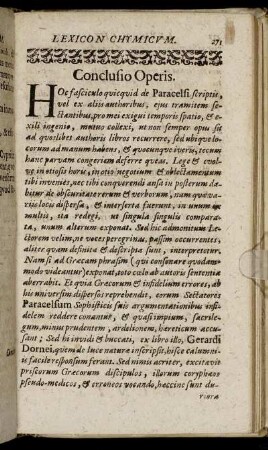 LEXICON CHYMICVM. 271
Conclusio Operis.
HOc fasciculo quicquid de Paracelsi scriptis,
vel ex aliis authoribus, ejus tramitem se-
ctantibus, pro mei exigui temporis spatio, & e-
xili ingenio, mutuo collexi, ut non semper opus sit
ad quoslibet authoris libros recurrere, seu ubique lo-
corum ad manum habens, & quocunque iveris, tecum
hanc parvam congeriem deferre queas. Lege & evol-
ve in otiosis horis, in otio negotium & oblectamentum
tibi invenies, nec tibi conquerendi ansa in posterum da-
bitur de obscuritate rerum & verborum, nam quæ va-
riis locis dispersa, & interserta fuerunt, in unum ex
multis, ita redegi, ut singula singulis comparata,
unum alterum exponat. Sed hic admonitum Le-
ctorem velim, ne voces peregrinas, passim occurrentes,
aliter quam definitæ & descriptæ sunt, interpretetur.
Nam si ad Græcam phrasim (qui consonare quodam-
modo videantur) exponat, toto cælo ab autoris sententia
aberrabit. Et quia Græcorum & infidelium errores, ab
his universim dispersis reprehendit, eorum Sectatores
Paracelsum Sophisticis suis argumentationibus infi-
delem reddere conantur, & quasi impium, sacrile-
gum, minus prudentem, ardelionem, hereticum accu-
sant; Sed hi invidi & buccati, ex libro illo, Gerardi
Dornei, quem de luce naturæ inscripsit, hisce calumni-
is facile responsum ferant. Sed nimis acriter, excitavit
priscorum Græcorum discipulos, illorum coryphæos
pseudo-medicos, & erroneos vocando, hæccine sunt du-
riora